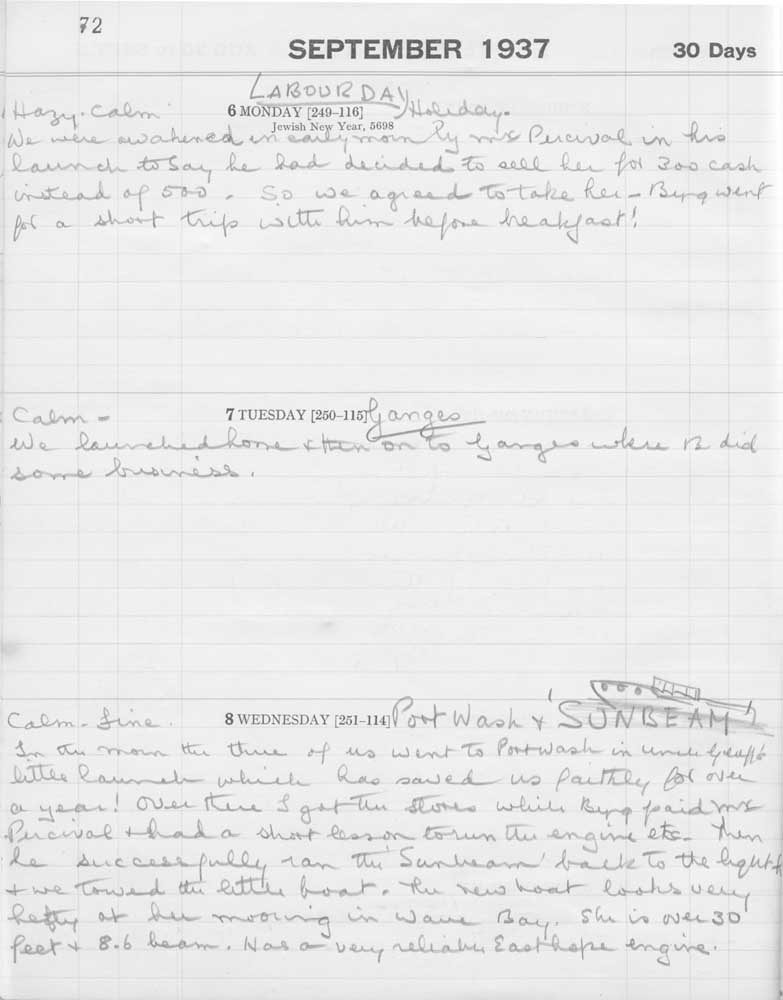 72
SEPTEMBER 1937 30 Days
LABOUR DAY
Hazy. Calm 6 MONDAY [249–116] Holiday.
Jewish New Year, 5698
We were awakened in early morn by Mr Percival in his
launch to say he had decided to sell her for 300 cash
instead of 500. So we agreed to take her – Byng went
for a short trip with him before breakfast!
Calm – 7 TUESDAY [250–115] Ganges
We launched home & then on to Ganges where B did
some business.
Calm – Fine. 8 WEDNESDAY [251–114] Port Wash & 'SUNBEAM'
In the morn the three of us went to Portwash in
little launch which has saved us for over
a year! Over there I got the stores while Byng paid Mr
Percival & had a short lesson to run the engine etc. Then
he successfully ran the 'Sunbeam' back to the
& we towed the little boat. The new boat looks very
hefty at her mooring in Bay. She is over 30
feet & 8.6 beam. Has a very reliable Easthope engine.